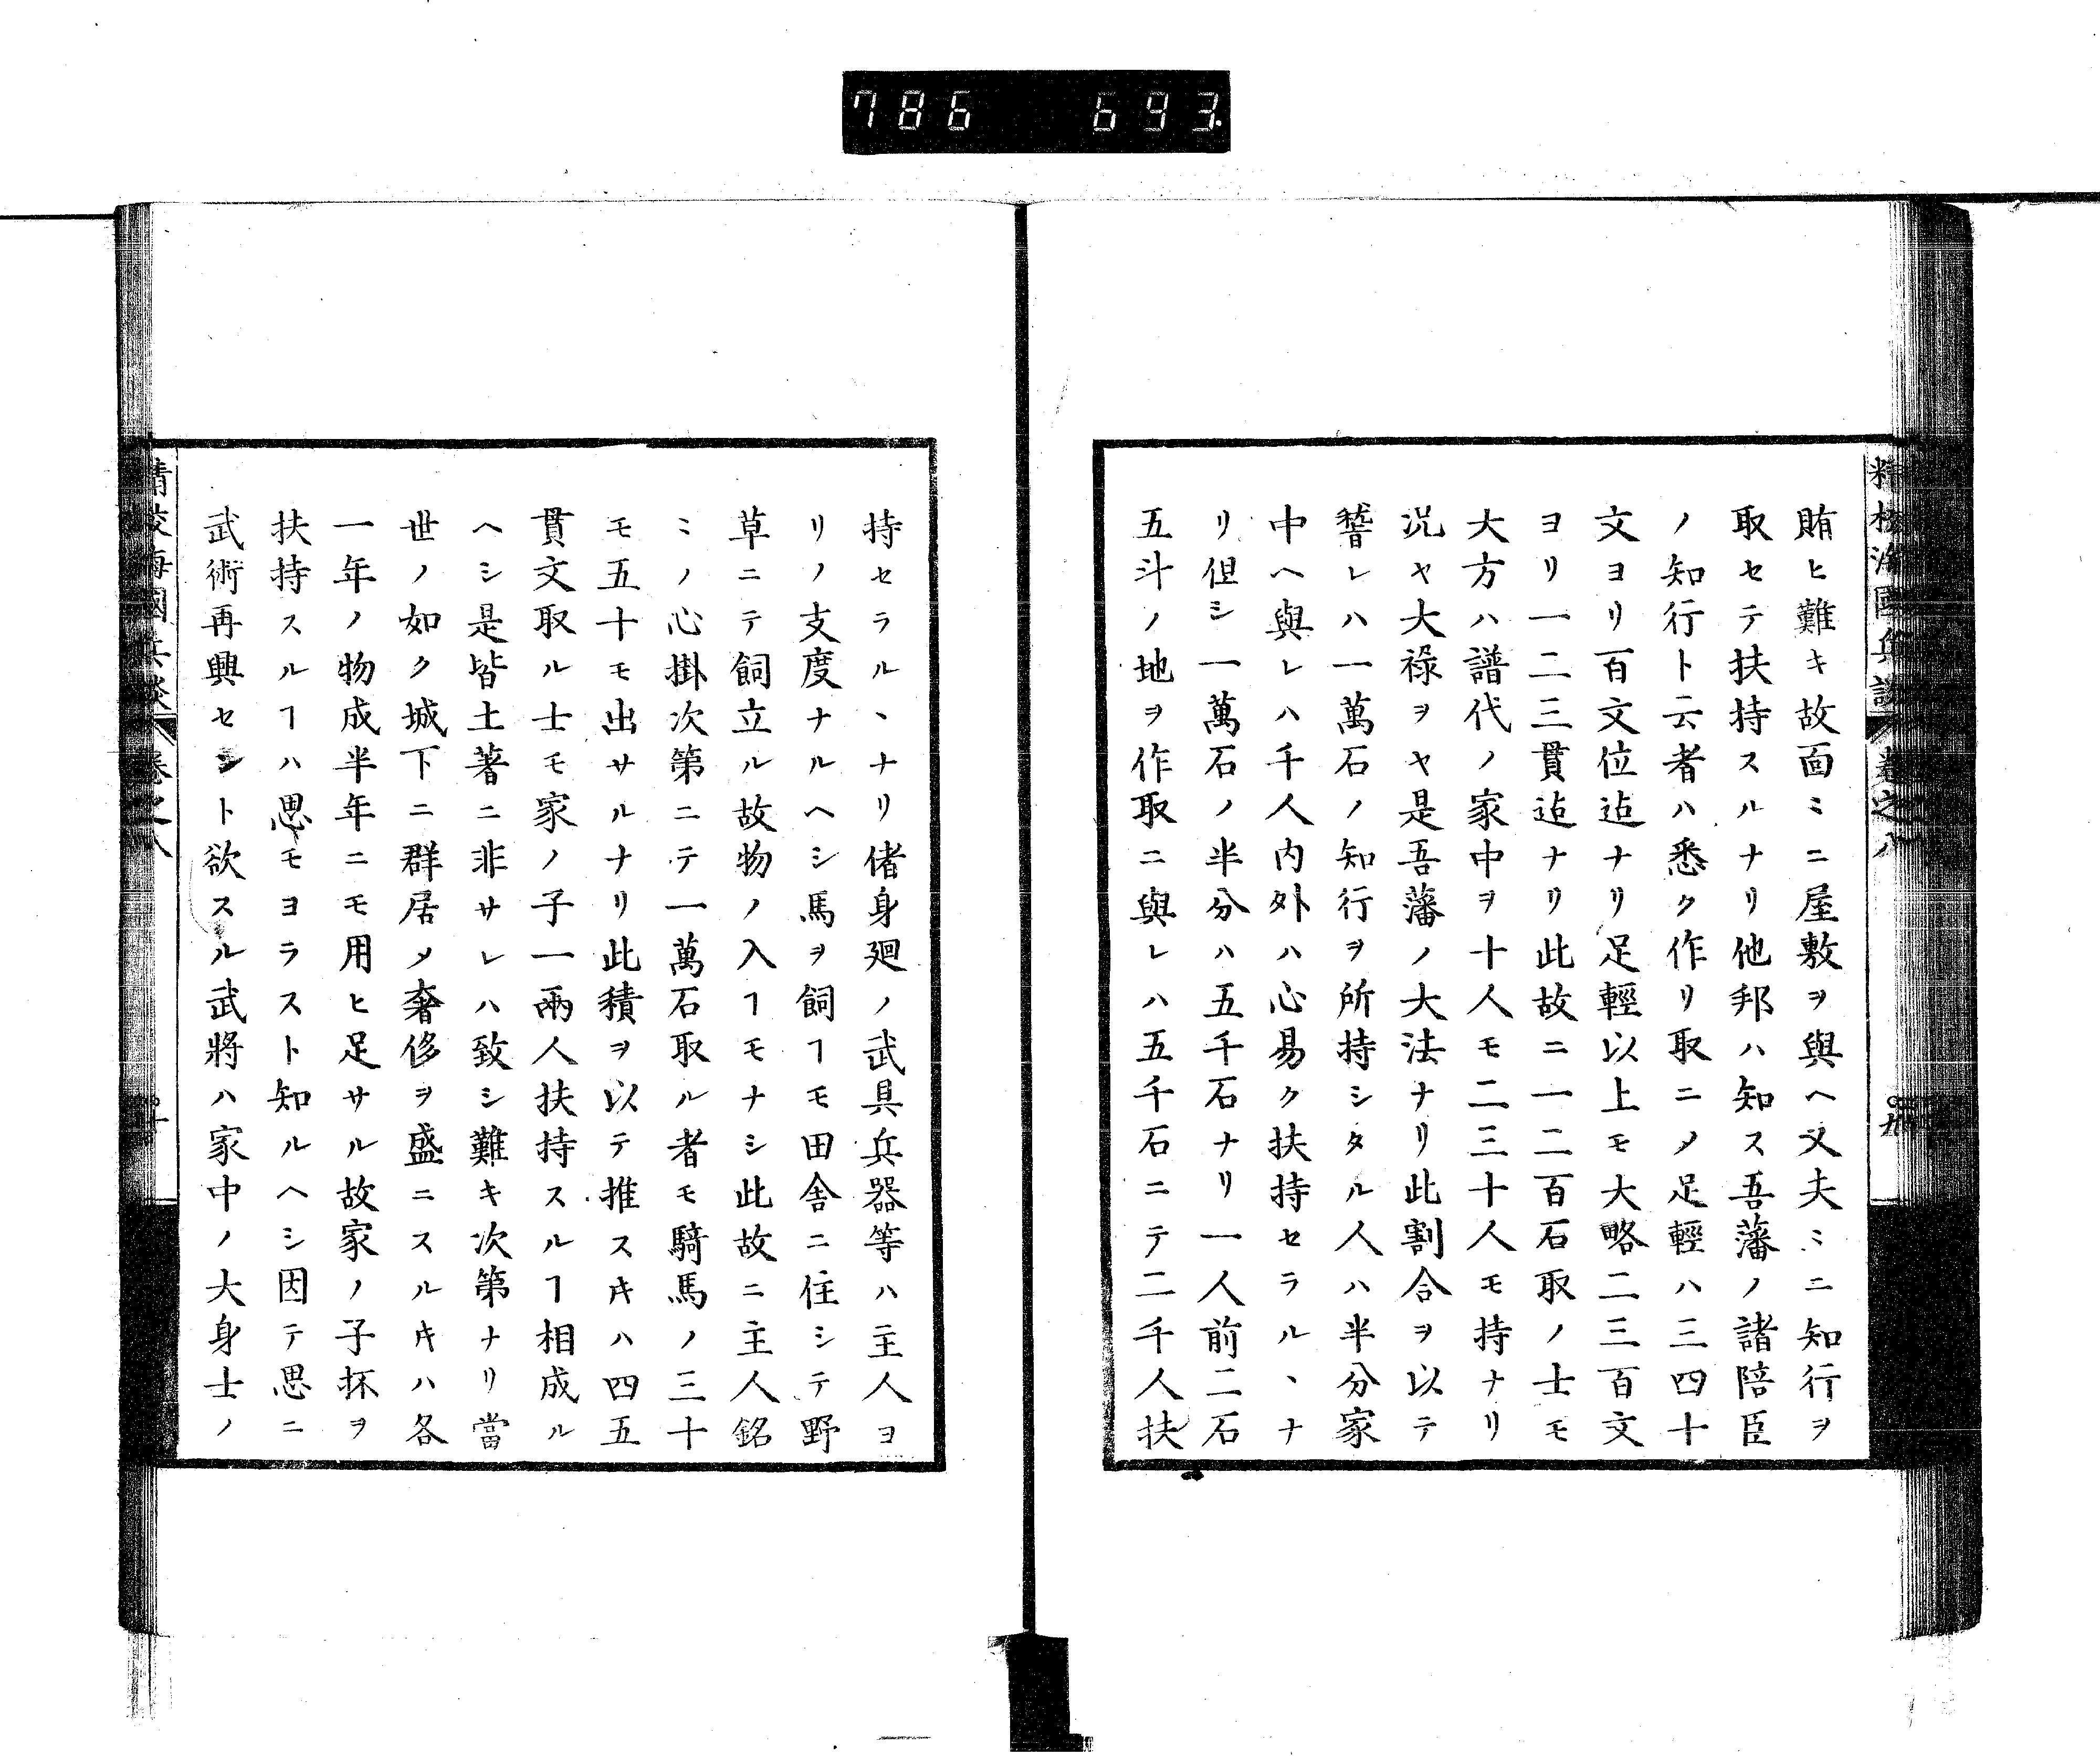 786 693.
精校海國兵談 卷之八
賄ヒ難キ故面ミニ屋敷ヲ與ヘ又夫ミニ知行ヲ
取セテ扶持スルナリ他邦ハ知ス吾藩ノ諸陪臣
ノ知行ト云者ハ悉ク作リ取ニメ足輕ハ三四十
文ヨリ百文位迠ナリ足輕以上モ大略二三百文
ヨリ一二三貫迠ナリ此故ニ一二百石取ノ士モ
大方ハ譜代ノ家中ヲ十人モ二三十人モ持ナリ
况ヤ大祿ヲヤ是吾藩ノ大法ナリ此割合ヲ以テ
稽レハ一萬石ノ知行ヲ所持シタル人ハ半分家
中ヘ與レハ千人内外ハ心易ク扶持セラルヽナ
リ但シ一萬石ノ半分ハ五千石ナリ一人前二石
五斗ノ地ヲ作取ニ與レハ五千石ニテ二千人扶
持セラルヽナリ偖身廻ノ武具兵器等ハ主人ヨ
リノ支度ナルヘシ馬ヲ飼ヿモ田舎ニ住シテ野
草ニテ飼立ル故物ノ入ヿモナシ此故ニ主人銘
ミノ心掛次第ニテ一萬石取ル者モ騎馬ノ三十
モ五十モ出サルナリ此積ヲ以テ推スキハ四五
貫文取ル士モ家ノ子一兩人扶持スルヿ相成ル
ヘシ是皆土著ニ非サレハ致シ難キ次第ナリ當
世ノ如ク城下ニ群居メ奢侈ヲ盛ニスルキハ各
一年ノ物成半年ニモ用ヒ足サル故家ノ子抔ヲ
扶持スルヿハ思モヨラスト知ルヘシ因テ思ニ
武術再興セント欲スル武將ハ家中ノ大身士ノ
精校海國兵談 卷之八